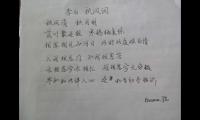 李白 秋风词
秋风清 秋月明
落叶聚还散 寒鸦栖复惊
相思相见知何日 此时此夜难为情
入我相思门 知我相思苦
长相思兮长相忆 短相思兮无穷极
早知如此绊人心